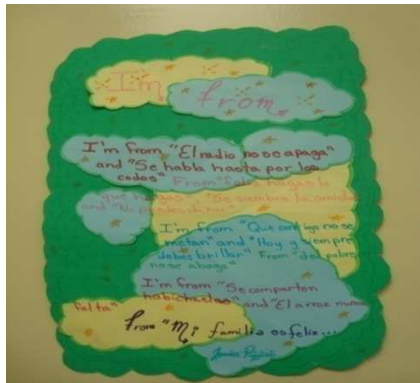 I'm
from
I'm from "El radio no se apaga"
and "Se habla hasta por los
codos" From
que hagas" "Se siembra la amistad"
and "No
I'm from "Que contigo no se
metan" and "Hoy y siempre
debes brillar" From "del pobre
no se abusa"
I'm from "Se comparten
habichuelas" and "El arroz nunca
falta"
From "Mi familia es feliz...